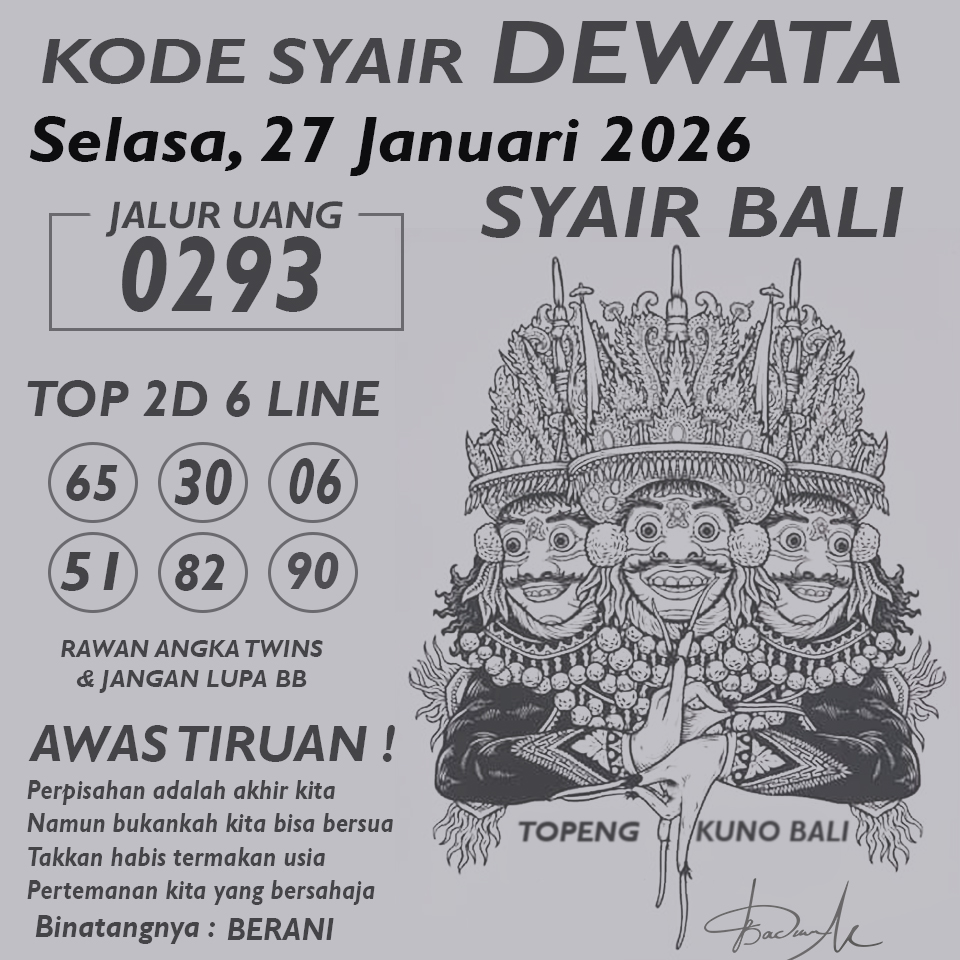 KODE SYAIR DEWATA
Selasa, 27 Januari 2026
SYAIR BALI
JALUR UANG
0293
TOP 2D 6 LINE
65 30 06
51 82 90
RAWAN ANGKA TWINS
& JANGAN LUPA BB
AWAS TIRUAN !
Perpisahan adalah akhir kita
Namun bukankah kita bisa bersua
Takkan habis termakan usia
Pertemanan kita yang bersahaja
Binatangnya : BERANI
TOPENG KUNO BALI